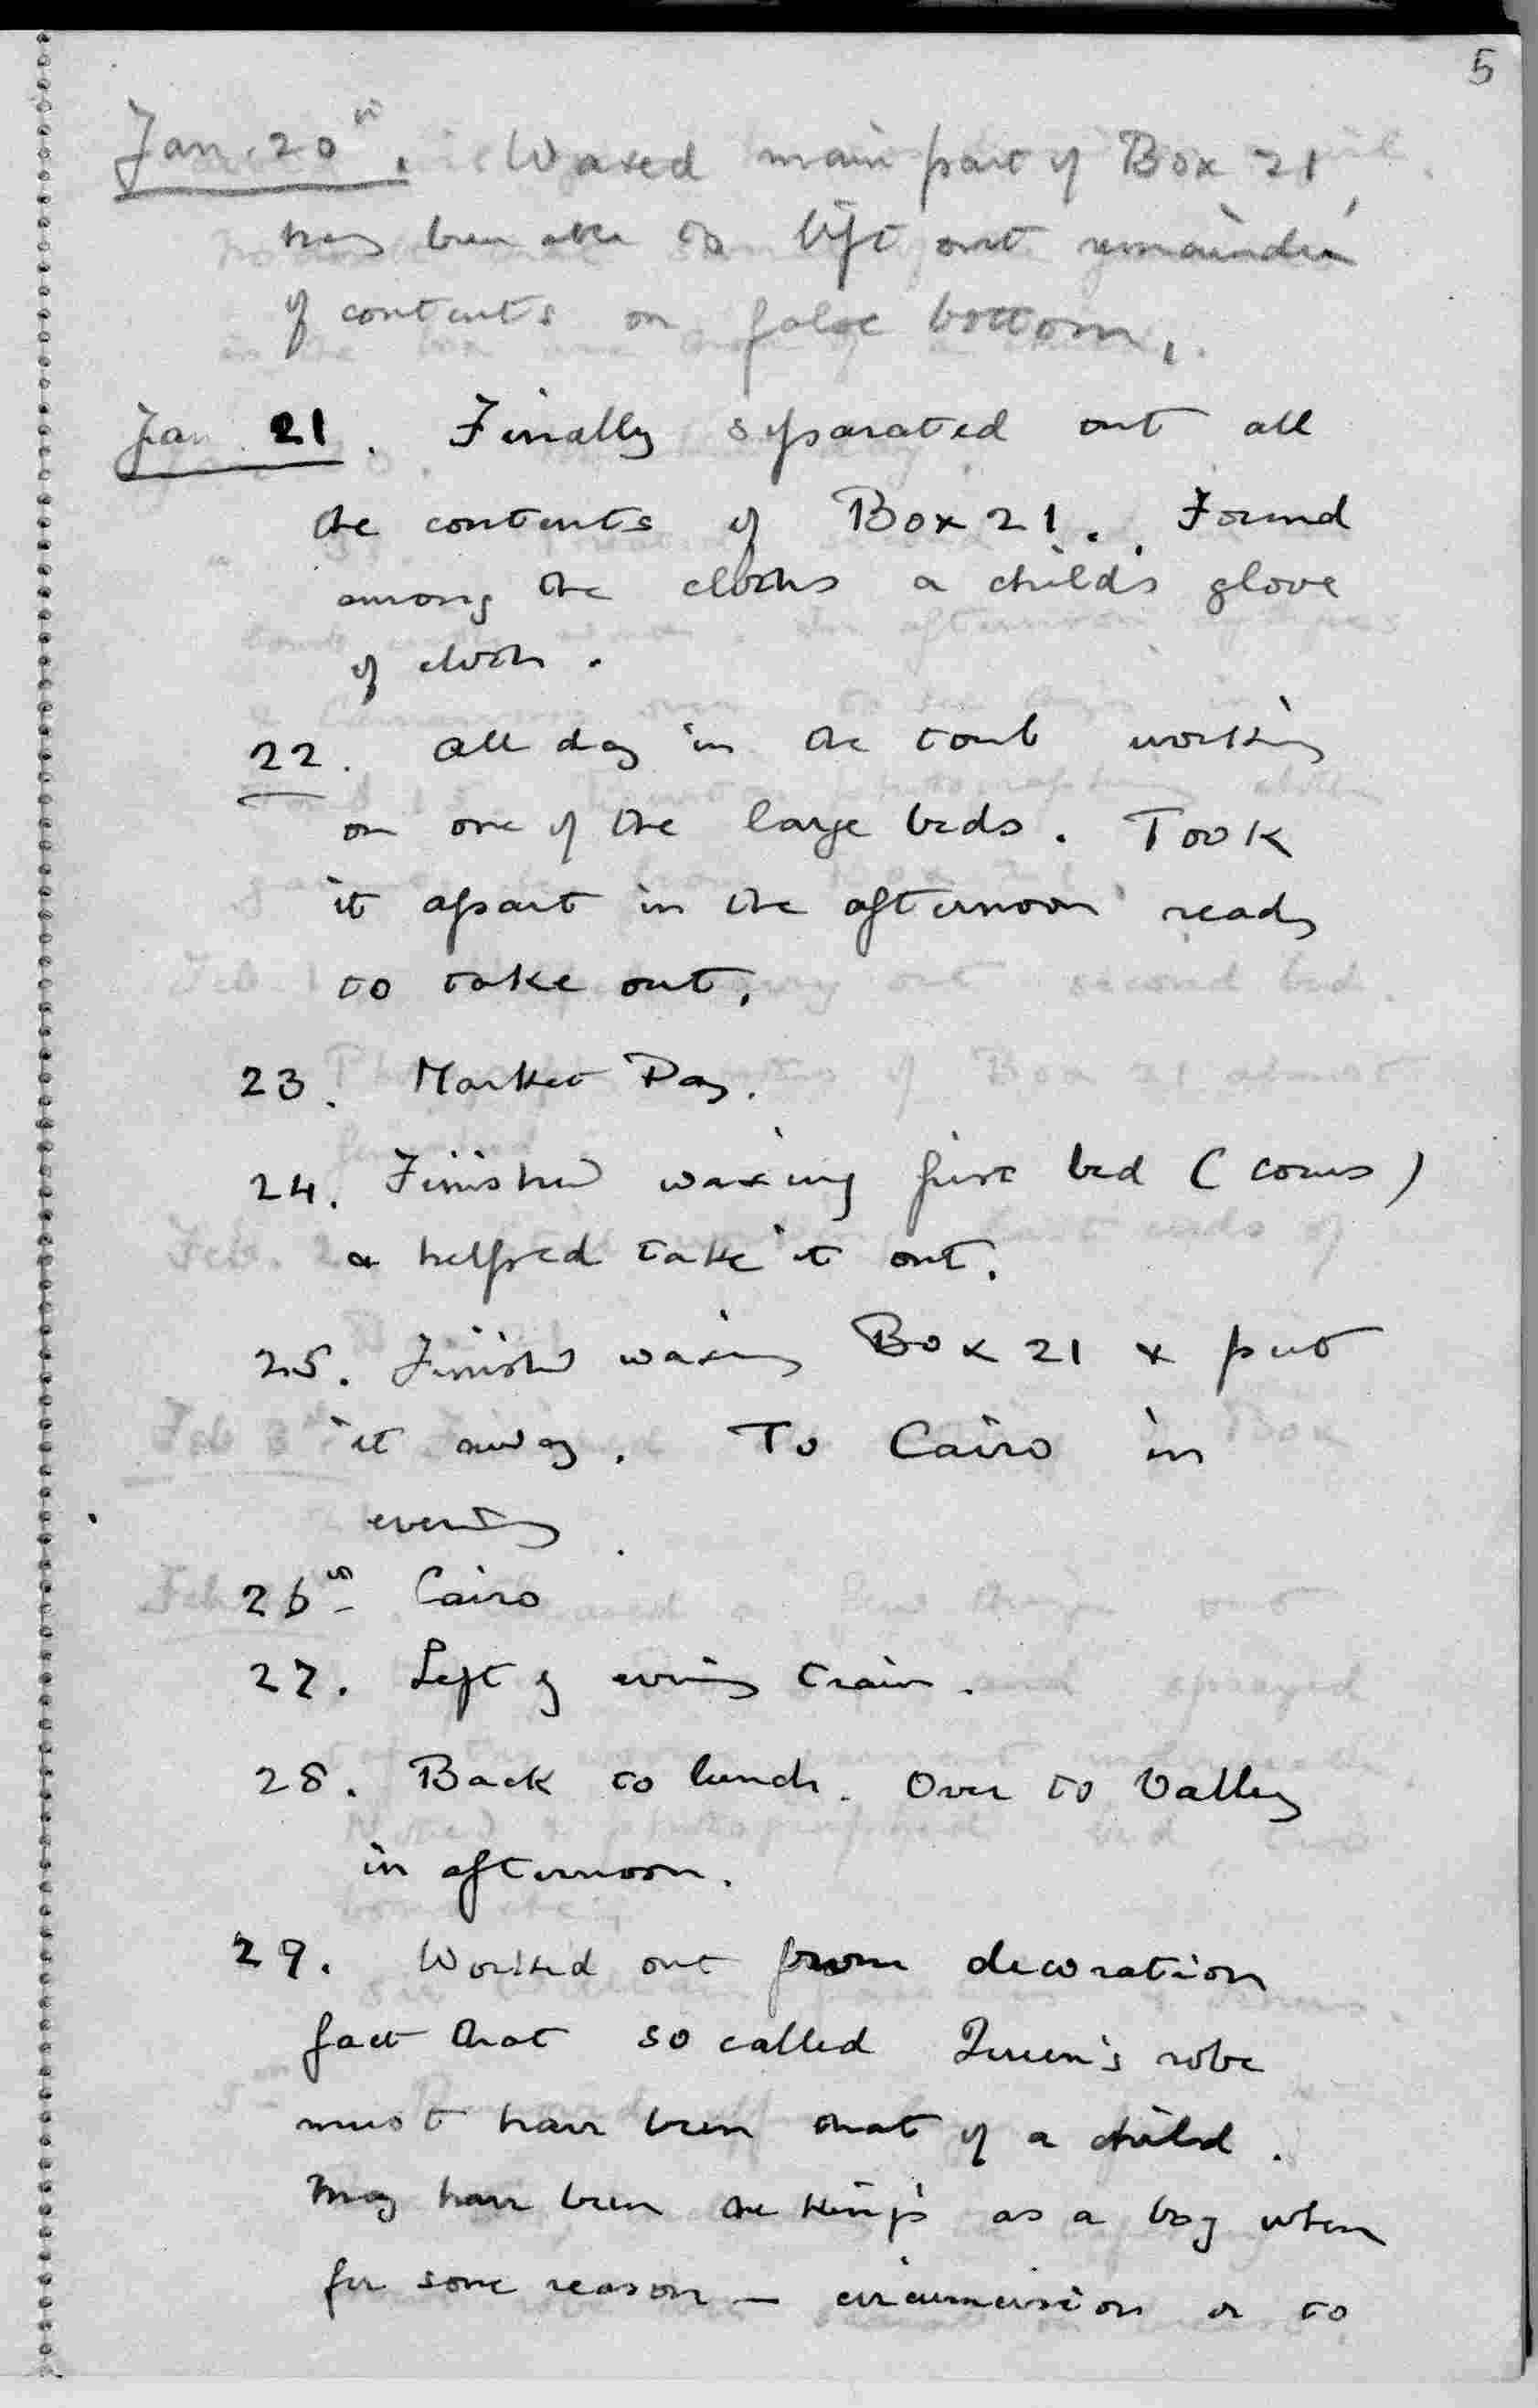 5
Jan. 20th. Waxed main part of Box 21,
having been able to lift out remainder
of contents on false bottom.
Jan. 21. Finally separated out all
the contents of Box 21. Found
among the cloths a child's glove
of cloth.
22. All day in the tomb working
on one of the large beds. Took
it apart in the afternoon ready
to take out.
23. Market Day.
24. Finished waxing first bed (cows)
& helped take it out.
25. Finished waxing Box 21 & put
it away. To Cairo in
evening.
26th Cairo
27. Left by evening train.
28. Back to lunch. Over to Valley
in afternoon.
29. Worked out from decoration
fact that so called Queen's robe
must have been that of a child.
May have been the King's as a boy when
for some reason – circumcision or to